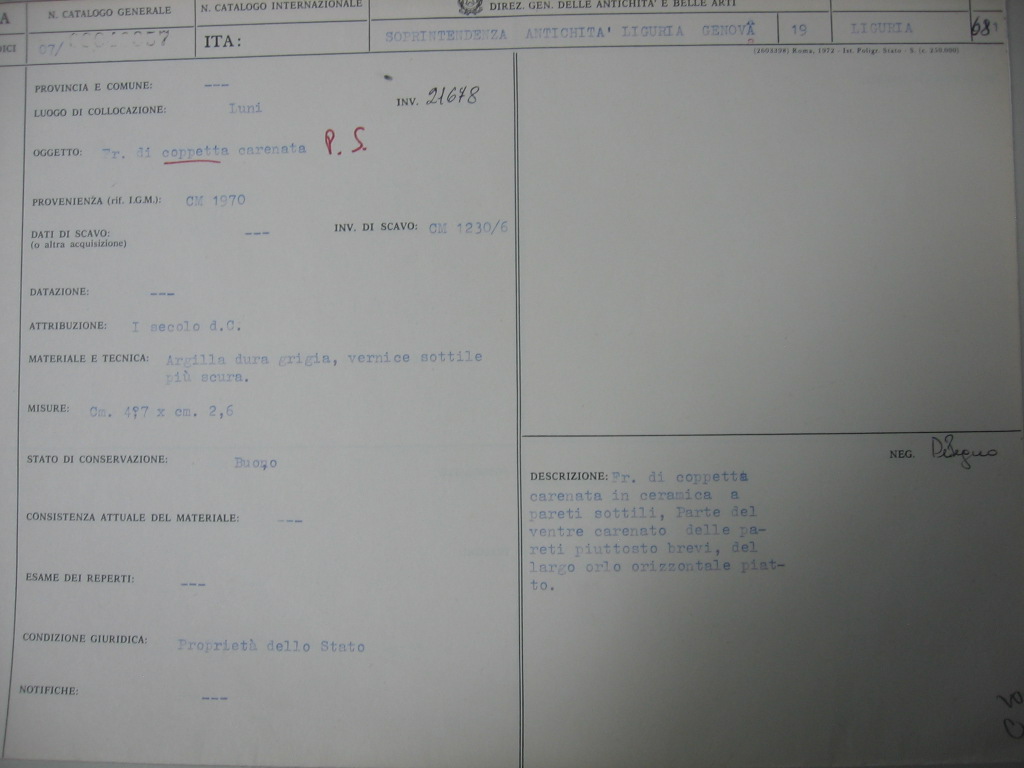 A
N. CATALOGO GENERALE
N. CATALOGO INTERNAZIONALE
DIREZ. GEN. DELLE ANTICHITA' E BELLE ARTI
DICI
07/
ITA:
SOPRINTENDENZA ANTICHITA' LIGURIA GENOVA
19
LIGURIA
68
(2603298) Roma, 1972 - Ist. Poligr. Stato - S. (c. 250.000)
PROVINCIA E COMUNE: ---
LUOGO DI COLLOCAZIONE: Luni
INV. 21678
OGGETTO: Fr. di coppetta carenata P. S.
PROVENIENZA (rif. I.G.M.): CM 1970
DATI DI SCAVO: ---
(o altra acquisizione)
INV. DI SCAVO: CM 1230/6
DATAZIONE: ---
ATTRIBUZIONE: I secolo d.C.
MATERIALE E TECNICA: Argilla dura grigia, vernice sottile
più scura.
MISURE: Cm. 4,7 x cm. 2,6
STATO DI CONSERVAZIONE: Buono
CONSISTENZA ATTUALE DEL MATERIALE: ---
ESAME DEI REPERTI: ---
CONDIZIONE GIURIDICA: Proprietà dello Stato
NOTIFICHE: ---
NEG. Disegno
DESCRIZIONE: Fr. di coppetta
carenata in ceramica a
pareti sottili, Parte del
ventre carenato delle pa-
reti piuttosto brevi, del
largo orlo orizzontale piat-
to.